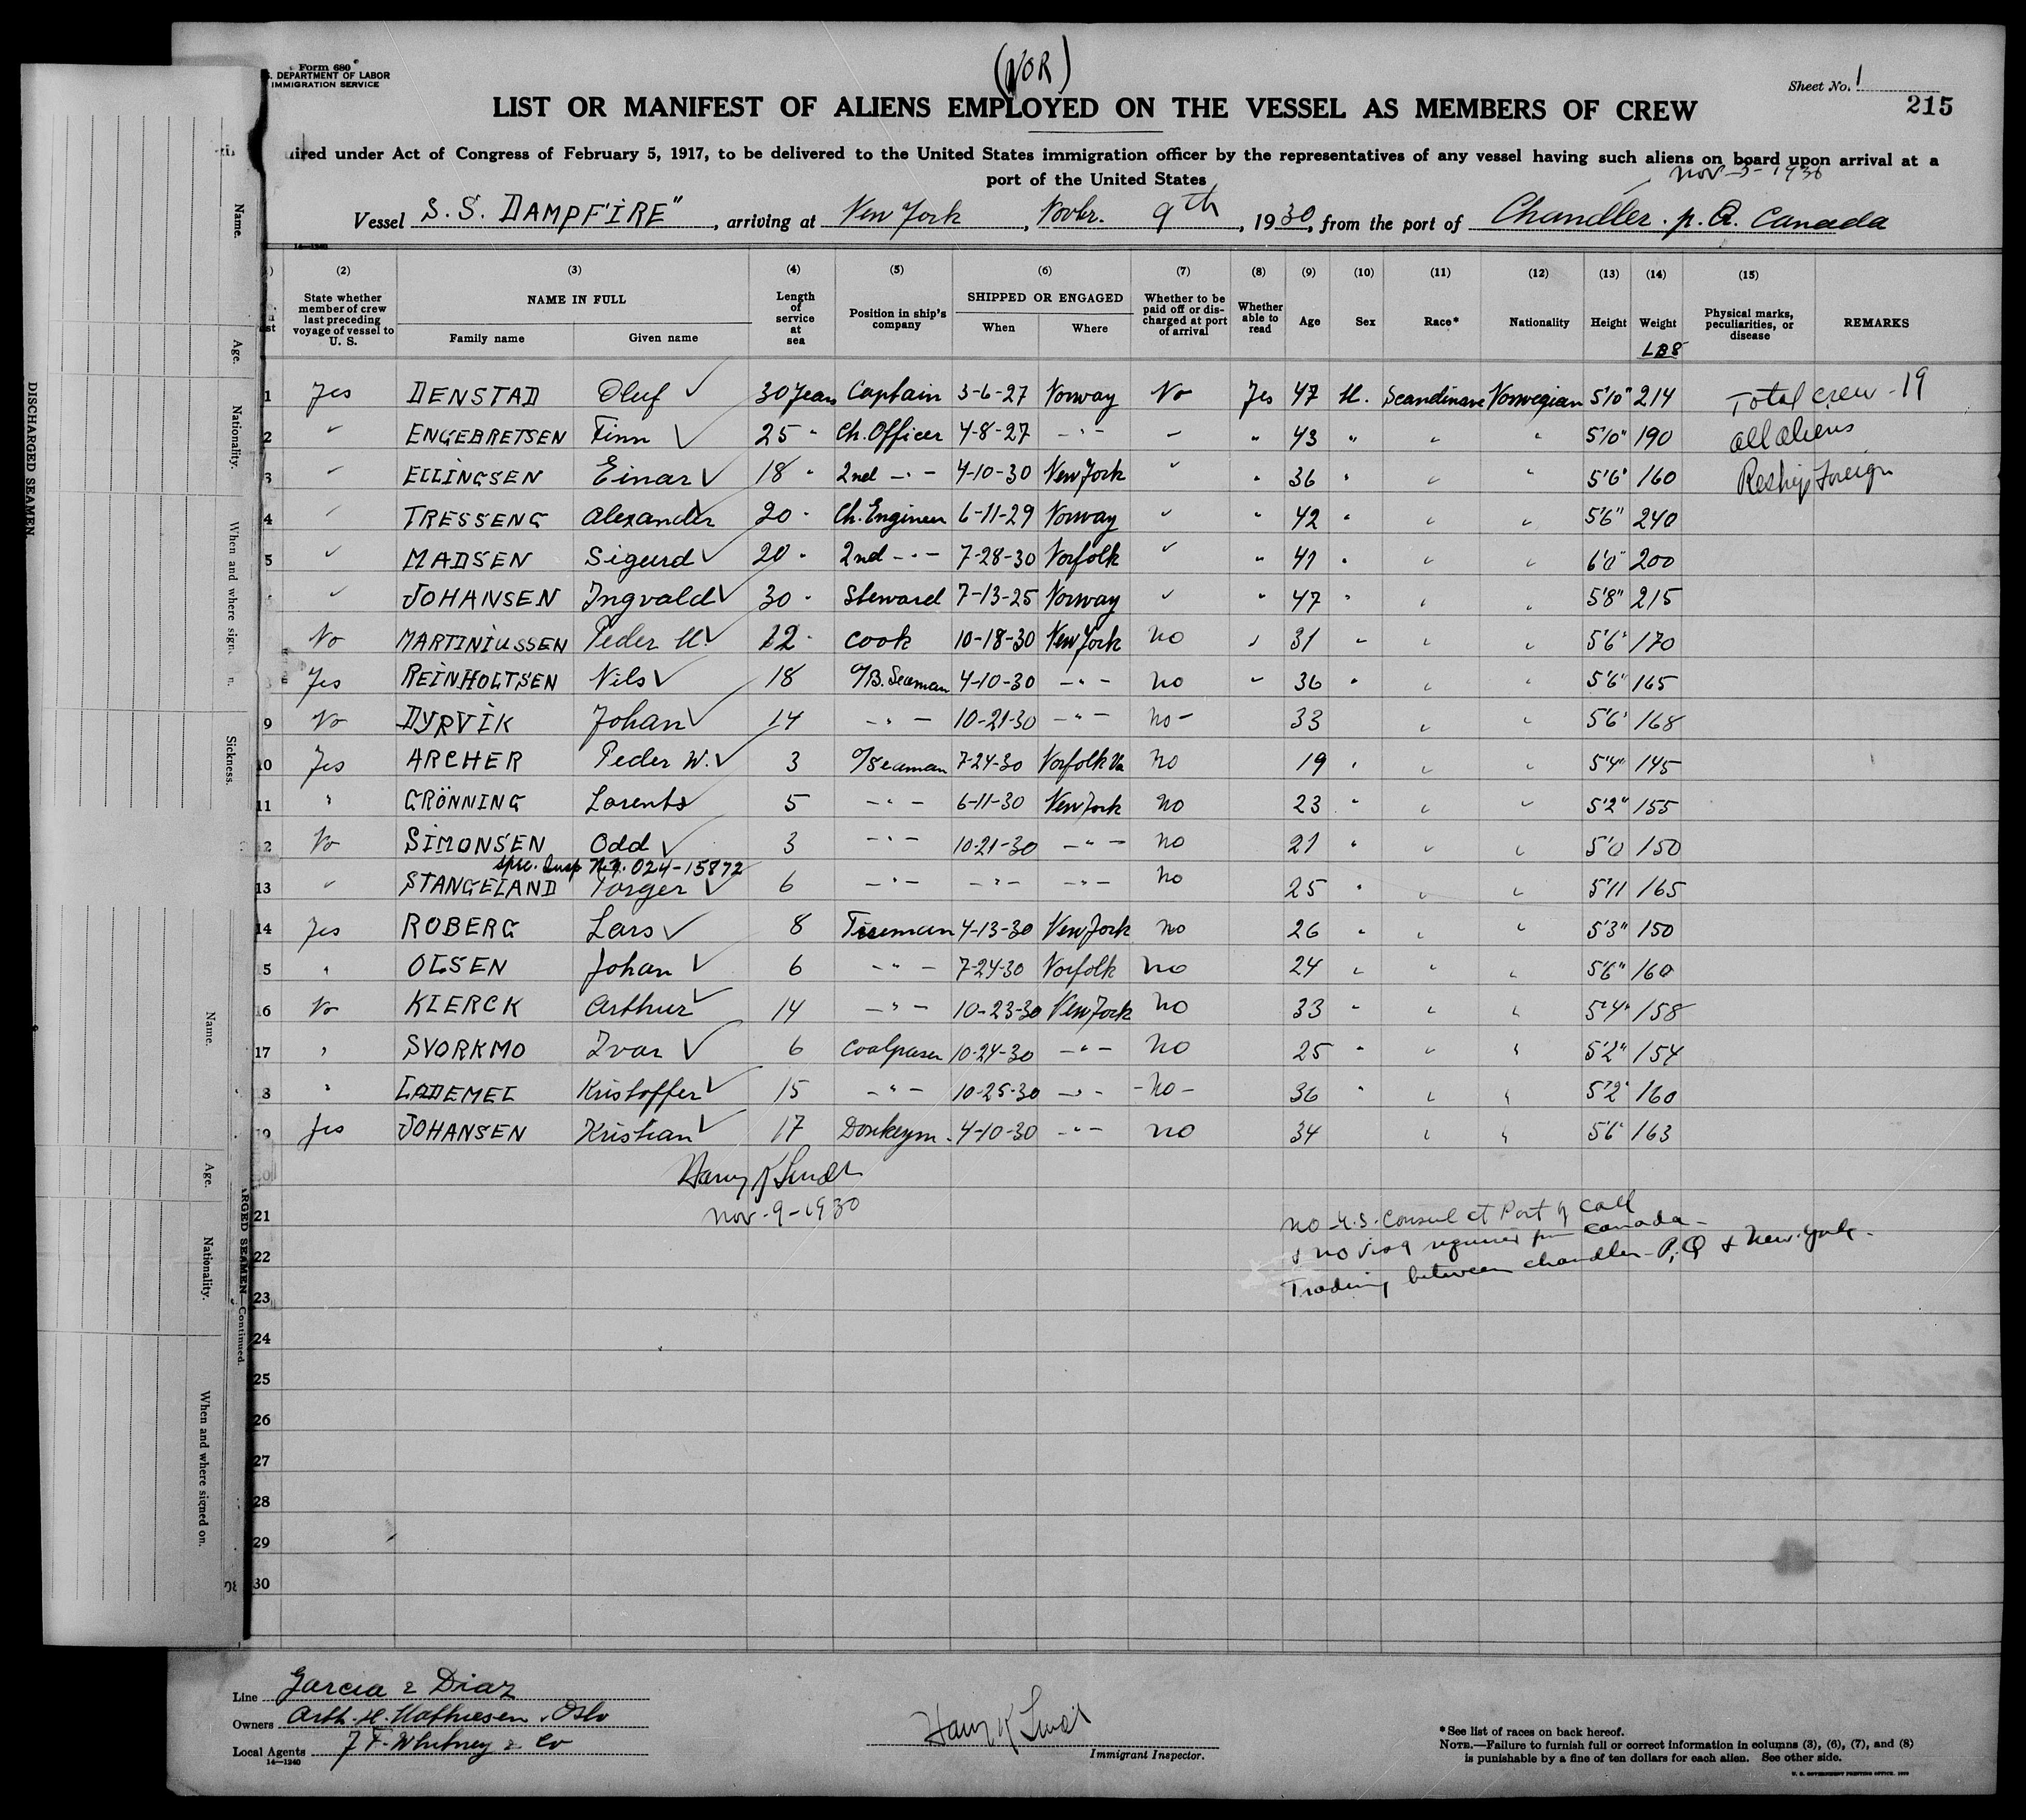 Form 680
S. DEPARTMENT OF LABOR
IMMIGRATION SERVICE
(NOR)
Sheet No. 1
215
LIST OR MANIFEST OF ALIENS EMPLOYED ON THE VESSEL AS MEMBERS OF CREW
uired under Act of Congress of February 5, 1917, to be delivered to the United States immigration officer by the representatives of any vessel having such aliens on board upon arrival at a
port of the United States
Vessel S.S. DAMPFIRE", arriving at New York, Novbr. 9th, 1930, from the port of Chandler. p.Q. Canada
14—1240
(2) (3) (4) (5) (6) (7) (8) (9) (10) (11) (12) (13) (14) (15)
State whether member of crew last preceding voyage of vessel to U. S. NAME IN FULL Family name Given name Length of service at sea Position in ship's company SHIPPED OR ENGAGED When Where Whether to be paid off or discharged at port of arrival Whether able to read Age Sex Race* Nationality Height Weight LBS Physical marks, peculiarities, or disease REMARKS
1 Yes DENSTAD Oluf ✓ 30 Years Captain 3-6-27 Norway No Yes 47 M. Scandinave Norwegian 5'10" 214 Total crew - 19
2 " ENGEBRETSEN Finn ✓ 25 " Ch. Officer 4-8-27 - " - " " 43 " " " 5'10" 190 all aliens
3 " ELLINGSEN Einar ✓ 18 " 2nd - " - 4-10-30 New York " " 36 " " " 5'6" 160 Reship Foreign
4 " TRESSENG Alexander 20 " Ch. Engineer 6-11-29 Norway " " 42 " " " 5'6" 240
5 " MADSEN Sigurd ✓ 20 " 2nd - " - 7-28-30 Norfolk " " 41 " " " 6'0" 200
" JOHANSEN Ingvald ✓ 30 " Steward 7-13-25 Norway " " 47 " " " 5'8" 215
No MARTINIUSSEN Peder M. ✓ 12 " Cook 10-18-30 New York no " 31 " " " 5'6" 170
Yes REINHOLTSEN Nils ✓ 18 A/B. Seaman 4-10-30 - " - no " 36 " " " 5'6" 165
9 No DYRVIK Johan ✓ 14 - " - 10-21-30 - " - no - 33 " " 5'6" 168
10 Yes ARCHER Peder W. ✓ 3 O/Seaman 7-24-30 Norfolk Va no 19 " " " 5'4" 145
11 " GRÖNNING Lorents 5 - " - 6-11-30 New York no 23 " " " 5'2" 155
12 No SIMONSEN Odd ✓ 3 - " - 10-21-30 - " - no 21 " " " 5'0 150
spec. Insp N.Y. 024-15872
13 " STANGELAND Torger ✓ 6 - " - - " - - " - no 25 " " " 5'11 165
14 Yes ROBERG Lars ✓ 8 Fireman 4-13-30 New York no 26 " " " 5'3" 150
15 " OLSEN Johan ✓ 6 - " - 7-24-30 Norfolk no 24 " " " 5'6" 160
16 No KIERCK Arthur ✓ 14 - " - 10-23-30 New York no 33 " " " 5'4" 158
17 " SVORKMO Ivar ✓ 6 Coalpaser 10-24-30 - " - no 25 " " " 5'2" 154
18 " LADEMEL Kristoffer ✓ 15 - " - 10-25-30 - " - - no - 36 " " " 5'2" 160
19 Yes JOHANSEN Kristian ✓ 17 Donkeym. 4-10-30 - " - no 34 " " 5'6" 163
Nov - 9 - 1930
21
22
23
24
25
26
27
28
29
30
no U.S. Consul at Port of Call
& no visa required from Canada -
Trading between Chandler - P,Q & New-York -
Line Garcia & Diaz
Owners Arth. H. Mathiesen, Oslo
Local Agents J F. Whitney & Co
14—1240
Immigrant Inspector.
*See list of races on back hereof.
NOTE.—Failure to furnish full or correct information in columns (3), (6), (7), and (8)
is punishable by a fine of ten dollars for each alien. See other side.
U. S. GOVERNMENT PRINTING OFFICE
DISCHARGED SEAMEN.
Name.
Age.
Nationality.
When and where sign
Sickness.
ARGED SEAMEN—Continued.
Name.
Age.
Nationality.
When and where signed on.